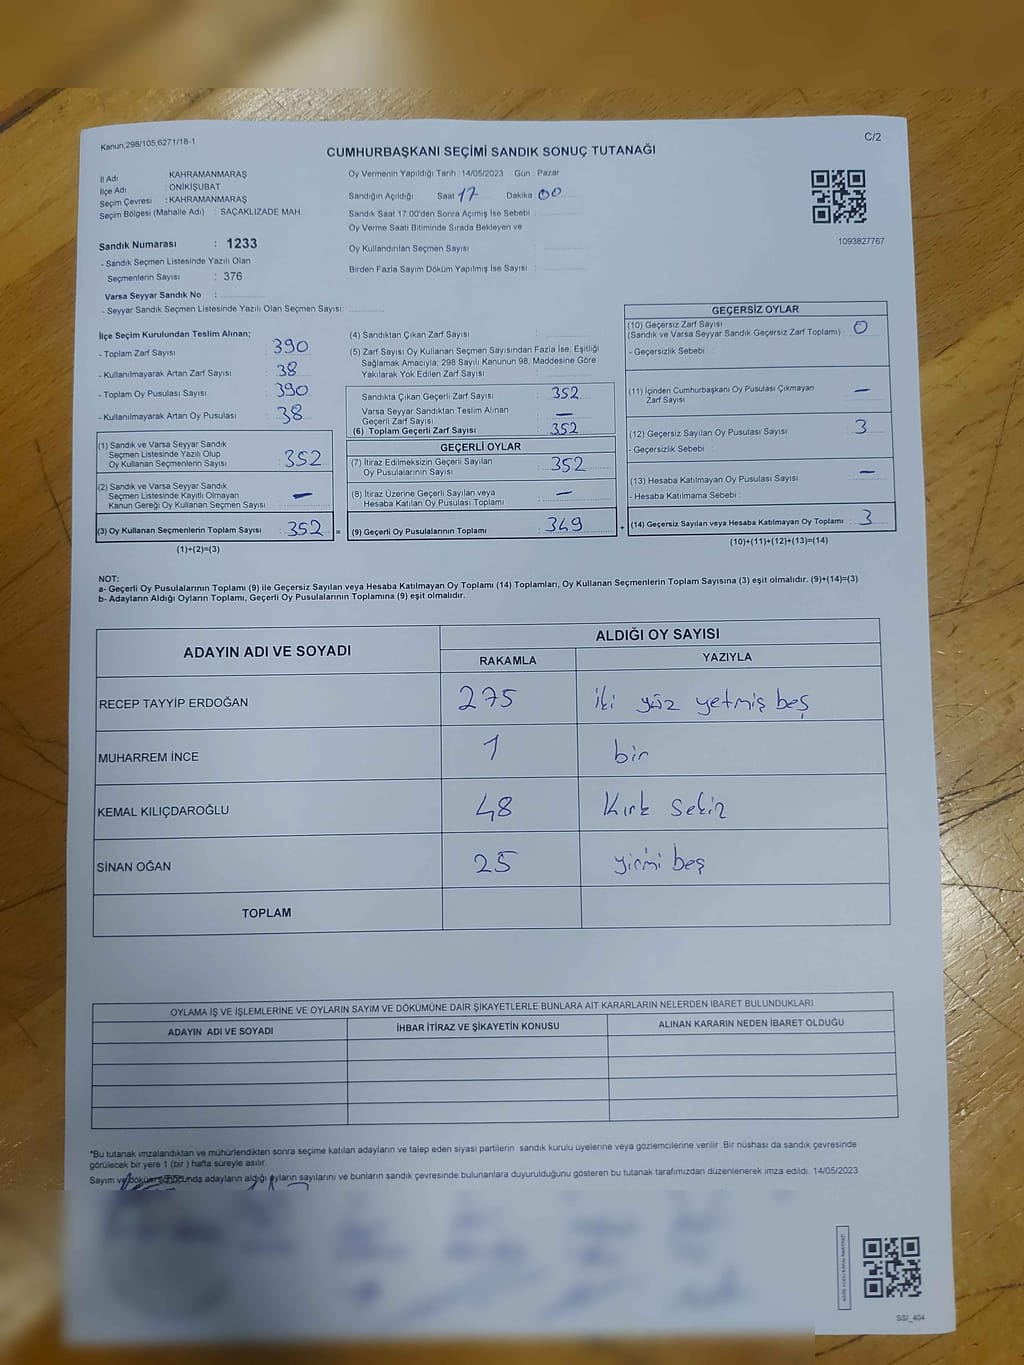 Kanun,298/105,6271/18-1
C/2
CUMHURBAŞKANI SEÇİMİ SANDIK SONUÇ TUTANAĞI
İl Adı : KAHRAMANMARAŞ
İlçe Adı : ONİKİŞUBAT
Seçim Çevresi : KAHRAMANMARAŞ
Seçim Bölgesi (Mahalle Adı) : SAÇAKLIZADE MAH.
Sandık Numarası : 1233
- Sandık Seçmen Listesinde Yazılı Olan
Seçmenlerin Sayısı : 376
Varsa Seyyar Sandık No :
- Seyyar Sandık Seçmen Listesinde Yazılı Olan Seçmen Sayısı:
Oy Vermenin Yapıldığı Tarih : 14/05/2023 Gün : Pazar
Sandığın Açıldığı Saat 17 Dakika : 00
Sandık Saat 17:00'den Sonra Açımış İse Sebebi :
Oy Verme Saati Bitiminde Sırada Bekleyen ve
Oy Kullandırılan Seçmen Sayısı :
Birden Fazla Sayım Döküm Yapılmış İse Sayısı :
1093827767
İlçe Seçim Kurulundan Teslim Alınan;
- Toplam Zarf Sayısı : 390
- Kullanılmayarak Artan Zarf Sayısı : 38
- Toplam Oy Pusulası : 390
- Kullanılmayarak Artan Oy Pusulası : 38
(1) Sandık ve Varsa Seyyar Sandık
Seçmen Listesinde Yazılı Olup
Oy Kullanan Seçmenlerin Sayısı : 352
(2) Sandık ve Varsa Seyyar Sandık
Seçmen Listesinde Kayıtlı Olmayan
Kanun Gereği Oy Kullanan Seçmen Sayısı : —
(3) Oy Kullanan Seçmenlerin Toplam Sayısı : 352 =
(1)+(2)=(3)
(4) Sandıktan Çıkan Zarf Sayısı :
(5) Zarf Sayısı Oy Kullanan Seçmen Sayısından Fazla İse, Eşitliği
Sağlamak Amacıyla, 298 Sayılı Kanunun 98. Maddesine Göre
Yakılarak Yok Edilen Zarf Sayısı :
Sandıkta Çıkan Geçerli Zarf Sayısı : 352
Varsa Seyyar Sandıktan Teslim Alınan
Geçerli Zarf Sayısı : —
(6) Toplam Geçerli Zarf Sayısı : 352
GEÇERLİ OYLAR
(7) İtiraz Edilmeksizin Geçerli Sayılan
Oy Pusulalarının Sayısı : 352
(8) İtiraz Üzerine Geçerli Sayılan veya
Hesaba Katılan Oy Pusulası Toplamı : —
(9) Geçerli Oy Pusulalarının Toplamı : 349 +
GEÇERSİZ OYLAR
(10) Geçersiz Zarf Sayısı
(Sandık ve Varsa Seyyar Sandık Geçersiz Zarf Toplamı) : 0
- Geçersizlik Sebebi :
(11) İçinden Cumhurbaşkanı Oy Pusulası Çıkmayan
Zarf Sayısı : —
(12) Geçersiz Sayılan Oy Pusulası Sayısı : 3
- Geçersizlik Sebebi :
(13) Hesaba Katılmayan Oy Pusulası Sayısı : —
- Hesaba Katılmama Sebebi :
(14) Geçersiz Sayılan veya Hesaba Katılmayan Oy Toplamı : 3
(10)+(11)+(12)+(13)=(14)
NOT:
a- Geçerli Oy Pusulalarının Toplamı (9) ile Geçersiz Sayılan veya Hesaba Katılmayan Oy Toplamı (14) Toplamları, Oy Kullanan Seçmenlerin Toplam Sayısına (3) eşit olmalıdır. (9)+(14)=(3)
b- Adayların Aldığı Oyların Toplamı, Geçerli Oy Pusulalarının Toplamına (9) eşit olmalıdır.
ADAYIN ADI VE SOYADI ALDIĞI OY SAYISI
RAKAMLA YAZIYLA
RECEP TAYYİP ERDOĞAN 275 iki yüz yetmiş beş
MUHARREM İNCE 1 bir
KEMAL KILIÇDAROĞLU 48 Kırk sekiz
SİNAN OĞAN 25 yirmi beş
TOPLAM
OYLAMA İŞ VE İŞLEMLERİNE VE OYLARIN SAYIM VE DÖKÜMÜNE DAİR ŞİKAYETLERLE BUNLARA AİT KARARLARIN NELERDEN İBARET BULUNDUKLARI
ADAYIN ADI VE SOYADI İHBAR İTİRAZ VE ŞİKAYETİN KONUSU ALINAN KARARIN NEDEN İBARET OLDUĞU
*Bu tutanak imzalandıktan ve mühürlendikten sonra seçime katılan adayların ve talep eden siyasi partilerin sandık kurulu üyelerine veya gözlemcilerine verilir. Bir nüshası da sandık çevresinde
görülecek bir yere 1 (bir ) hafta süreyle asılır.
Sayım ve döküm sonucunda adayların aldığı oyların sayılarını ve bunların sandık çevresinde bulunanlara duyurulduğunu gösteren bu tutanak tarafımızdan düzenlenerek imza edildi. 14/05/2023
SSI_404